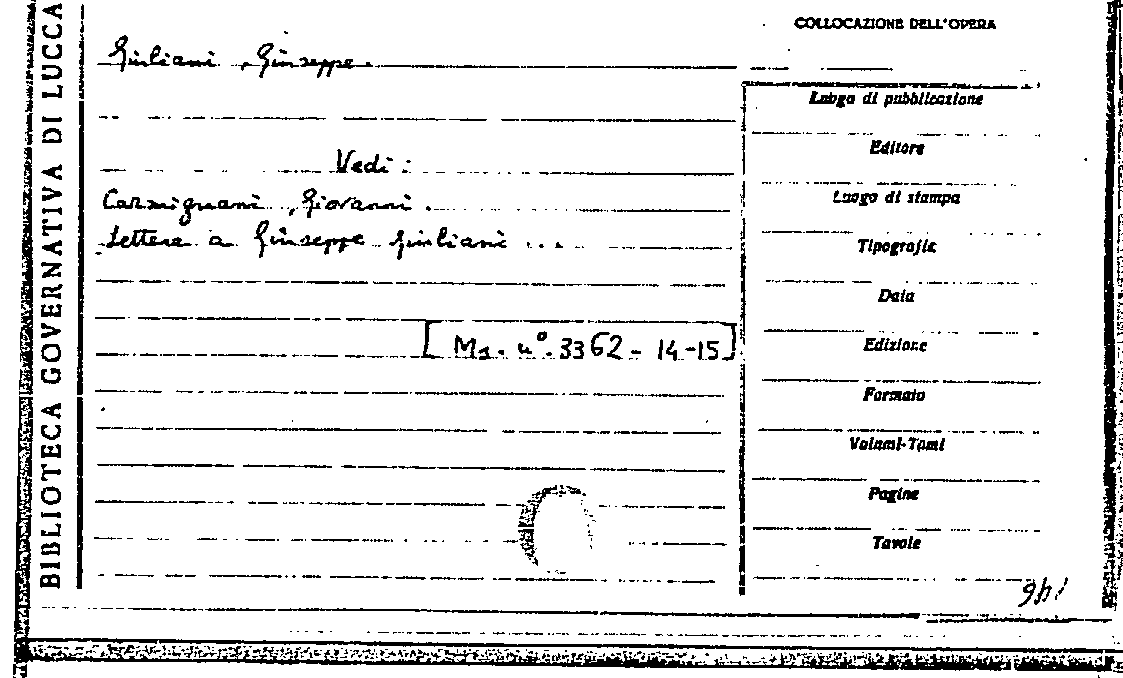 BIBLIOTECA GOVERNATIVA DI LUCCA
COLLOCAZIONE DELL'OPERA
Giuliani, Giuseppe.
Vedi:
Carmignani, Giovanni.
Lettere a Giuseppe Giuliani ...
[Ms. n°. 3362 - 14-15]
Luogo di pubblicazione
Editore
Luogo di stampa
Tipografia
Data
Edizione
Formato
Volumi-Tomi
Pagine
Tavole